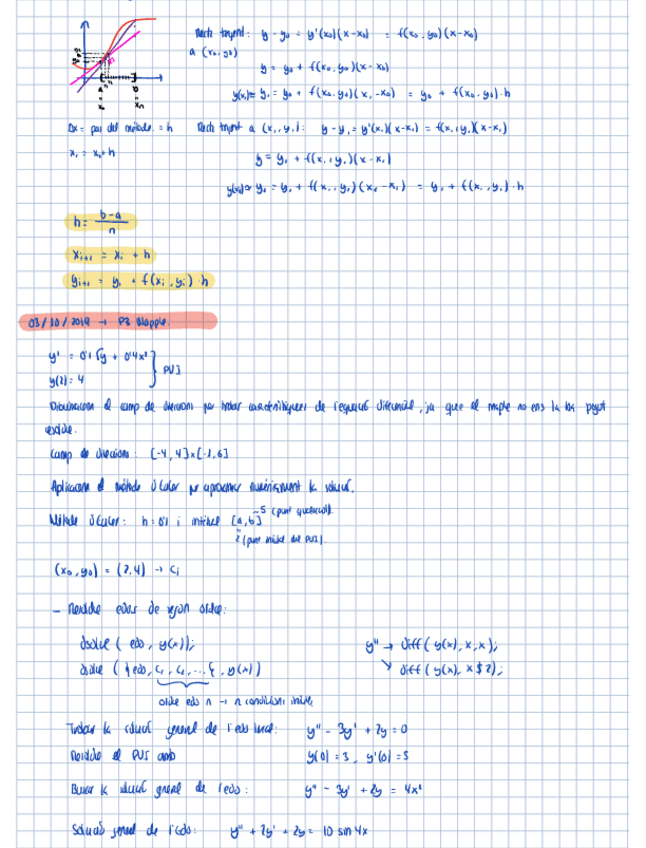 Recta tangent: y - y₀ = y'(x₀)(x-x₀) = f(x₀,y₀)(x-x₀)
a (x₀,y₀)
y = y₀ + f(x₀,y₀)(x-x₀)
y(x₁)≈ y₁ = y₀ + f(x₀,y₀)(x₁-x₀) = y₀ + f(x₀,y₀)·h
Δx = pas del mètode = h Recta tangent a (x₁,y₁): y - y₁ = y'(x₁)(x-x₁) = f(x₁,y₁)(x-x₁)
x₁ = x₀+h
y = y₁ + f(x₁,y₁)(x-x₁)
y(x₂)≈ y₂ = y₁ + f(x₁,y₁)(x₂-x₁) = y₁ + f(x₁,y₁)·h
h = b-a / n
xᵢ₊₁ = xᵢ + h
yᵢ₊₁ = yᵢ + f(xᵢ,yᵢ)·h
03/10/2019 → P3 Maple.
y' = 0'1√y + 0'4x²
y(2) = 4 } PVI
Dibuixarem el camp de direccions per trobar característiques de l'equació diferencial, ja que el maple no ens la ha pogut
resoldre.
Camp de direccions: [-4,4]x[-1,6]
Aplicarem el mètode d'Euler per aproximar numèricament la solució.
Mètode d'Euler: h=0'1 i interval [a,b] 5 (punt qüestió).
2 (punt inicial del PVI).
(x₀,y₀) = (2,4) → ci
- Resoldre edos de segon ordre:
dsolve ( edo, y(x)); y'' → diff( y(x), x,x);
dsolve ( {edo, c₁, c₂,...}, y(x)) diff( y(x), x$2);
ordre edo n → n condicions inicials
Trobar la solució general de l'edo lineal: y'' - 3y' + 2y = 0
Resoldre el PVI amb y(0)=3, y'(0)=5
Buscar la solució general de l'edo: y'' - 3y' + 2y = 4x²
Solució general de l'edo: y'' + 2y' + 2y = 10 sin 4x